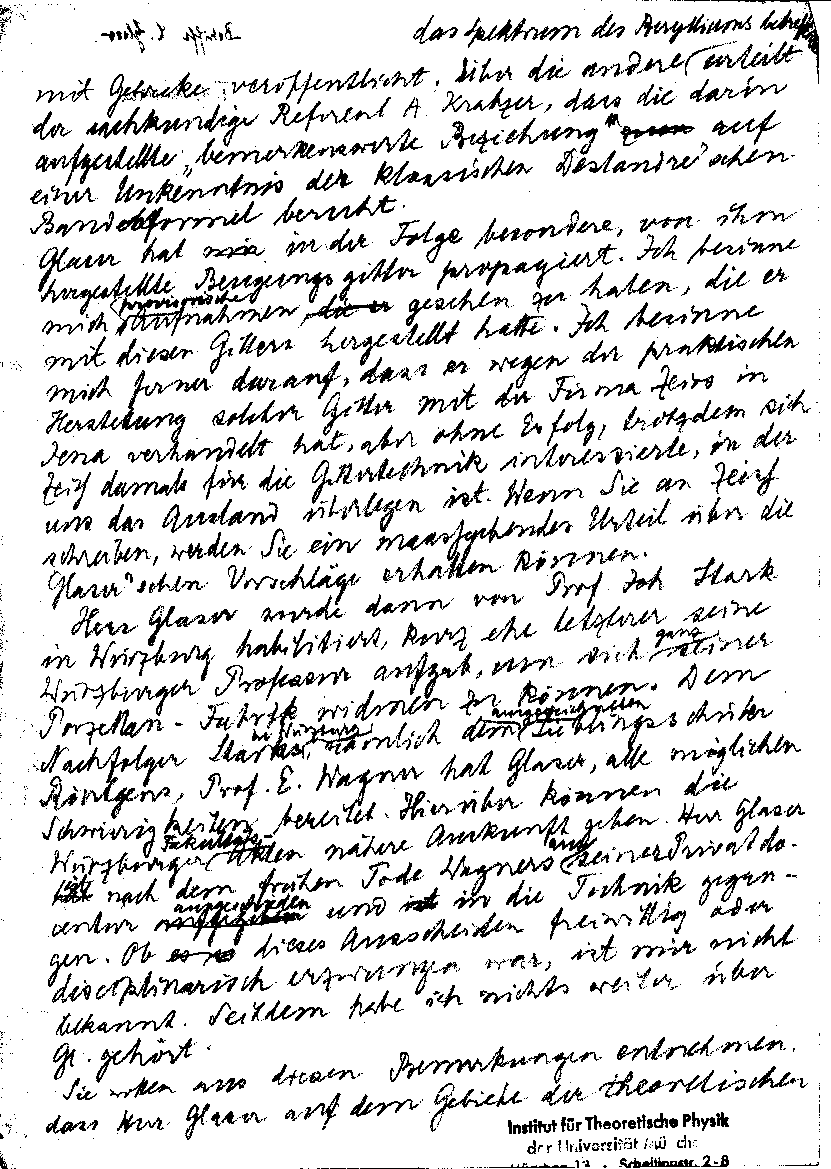 das Spektrum des Berylliums
mit Gehrcke veröffentlicht. Über die andere erteilt
der sachkundige Referent A Kratzer, dass die darin
aufgestellte „bemerkenswerte Beziehung" auf
einer Unkenntnis der klassischen Deslandre'schen
Bandenformel beruht.
Glaser hat in der Folge besondere, von ihm
hergestellte Beugungsgitter propagiert. Ich besinne
provisorische
mich Aufnahmen die er gesehen zu haben, die er
mit diesen Gittern hergestellt hatte. Ich besinne
mich ferner darauf, dass er wegen der praktischen
Herstellung solcher Gitter mit der Firma Zeiss in
Jena verhandelt hat, aber ohne Erfolg, trotzdem sich
Zeiß damals für die Gittertechnik interessierte, in der
uns das Ausland überlegen ist. Wenn Sie an Zeiß
schreiben, werden Sie ein maasgebendes Urteil über die
Glaser'schen Vorschläge erhalten können.
Herr Glaser wurde dann von Prof Joh Stark
in Würzburg habilitiert, kurz ehe letzterer seine
ganz
Würzburger Professur aufgab, um sich seiner
Porzellan-Fabrik widmen zu können. Dem
in Würzburg ausgezeichneten
Nachfolger Starks, nämlich dem Lieblingsschüler
Röntgens, Prof. E. Wagner hat Glaser, alle möglichen
Schwierigkeiten bereitet. Hierüber können die
Fakultäts-
Würzburger Akten nähere Auskunft geben. Herr Glaser
aus
ist nach dem frühen Tode Wagners seiner Privatdo-
ausgeschieden
centur aufgegeben und ist in die Technik gegan-
gen. Ob es es dieses Ausscheiden freiwillig oder
disciplinarisch erzwungen war, ist mir nicht
bekannt. Seitdem habe ich nichts weiter über
Gl. gehört.
Sie aus diesen Bemerkungen entnehmen,
dass Herr Glaser auf dem Gebiete der theoretischen
Institut für Theoretische Physik
der Universität München
München 13 · Schellingstr. 2-8